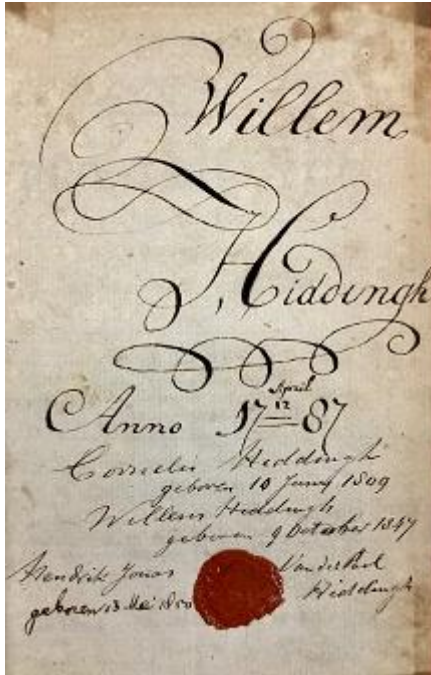 Willem
Hiddingh
April
Anno 17 12 87
Cornelis Hiddingh
geboren 10 Juny 1809
Willem Hiddingh
geboren 9 October 1847
Hendrik Jonas Van der Poel
geboren 13 Mei 1850 Hiddingh